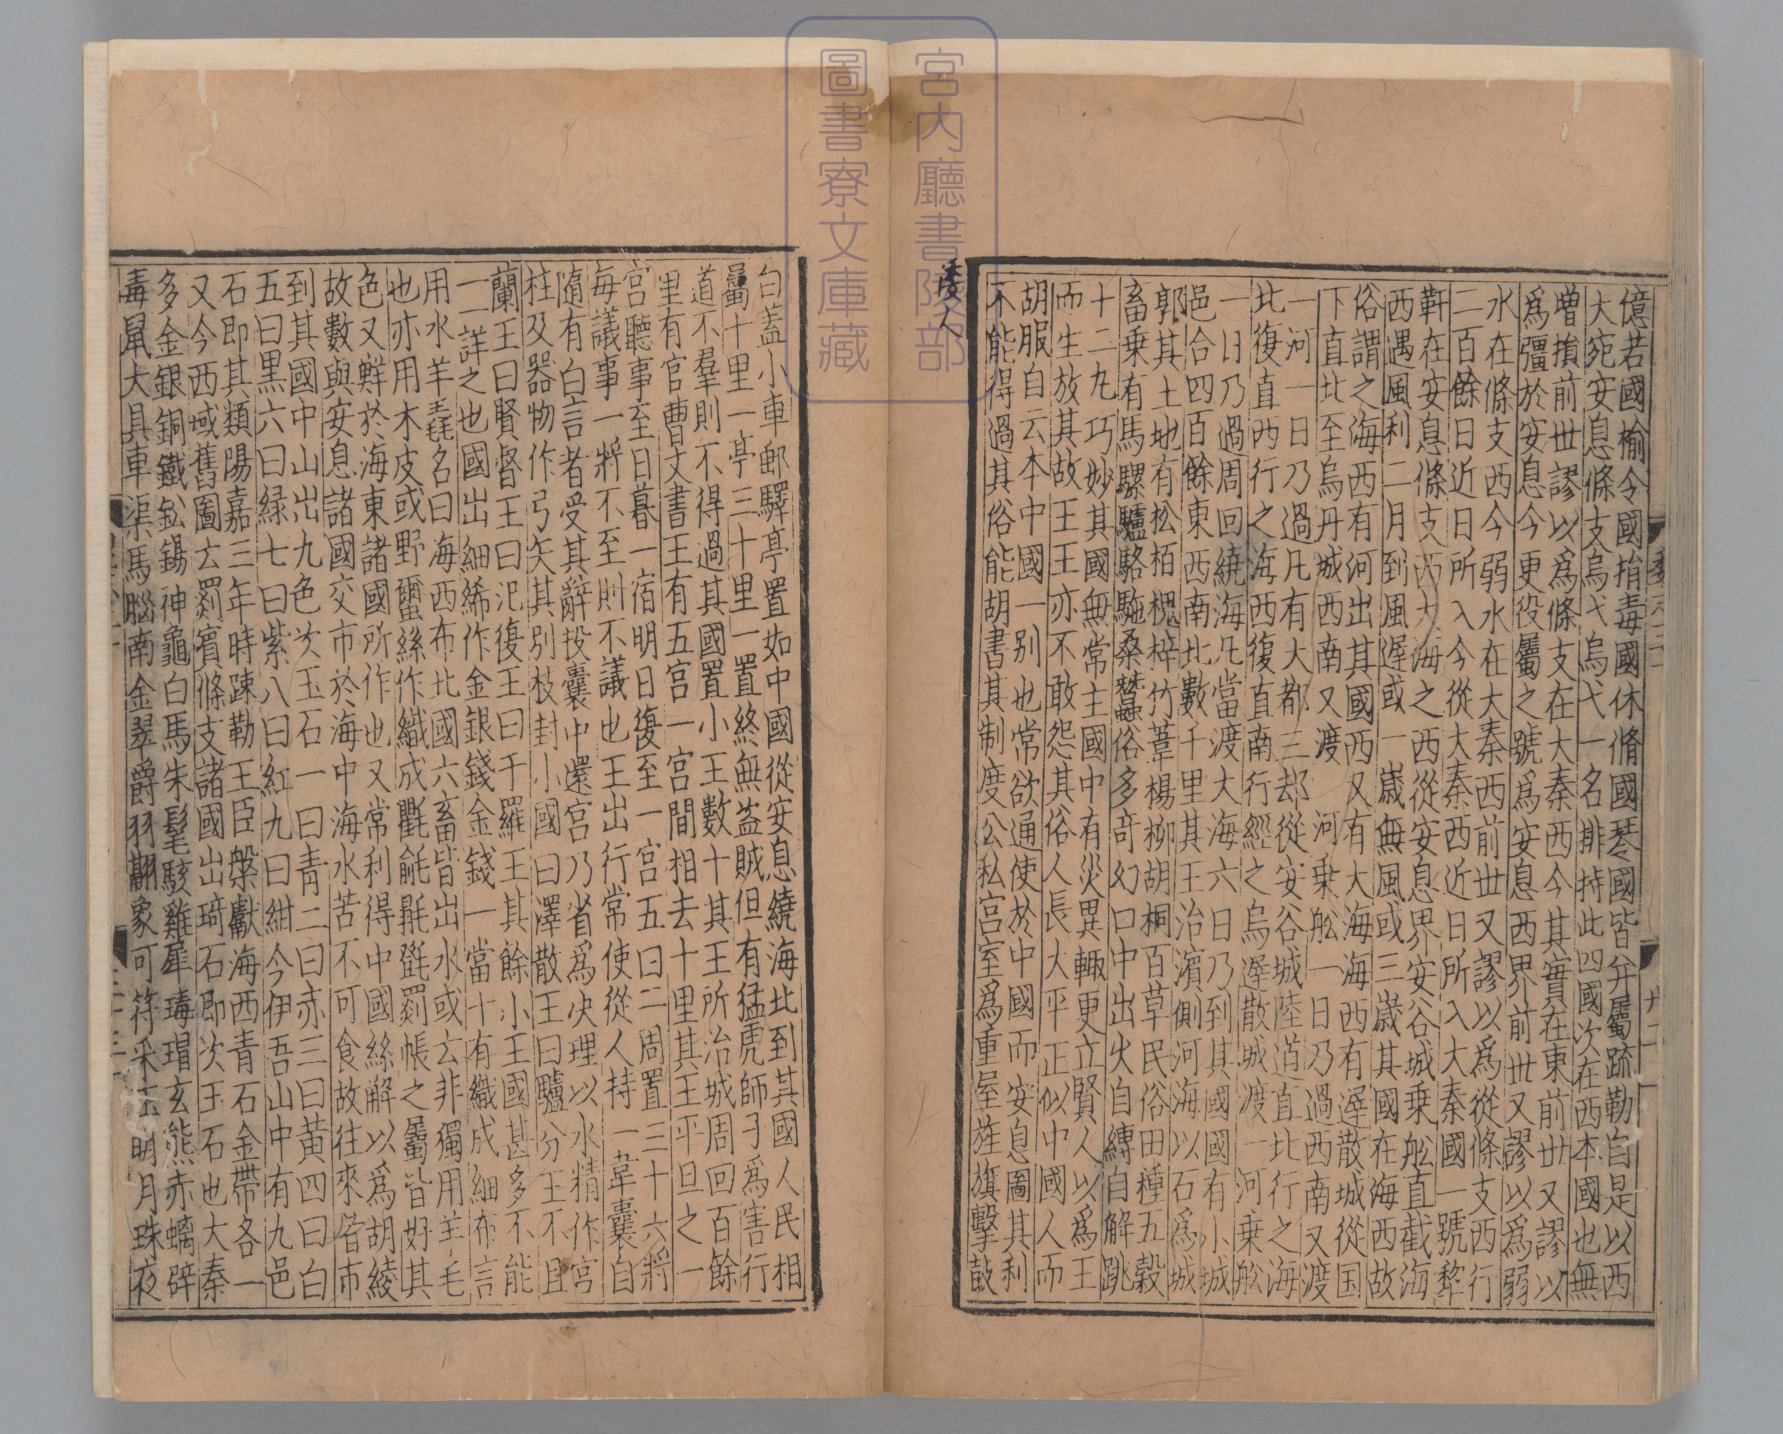 億若國榆令國捐毒國休脩國琴國皆并屬疏勒自是以西
大宛安息條支烏弋烏弋一名排持此四國次在西本國也無
增損前世謬以爲條支在大秦西今其實在東前世又謬以
爲彊於安息今更役屬之號爲安息西界前世又謬以爲弱
水在條支西今弱水在大秦西前世又謬以爲從條支西行
二百餘日近日所入今從大秦西近日所入大秦國一號犂
靬在安息條支西大海之西從安息界安谷城乗舩直截海
西遇風利二月到風遲或一歳無風或三歳其國在海西故
俗謂之海西有河出其國西又有大海海西有遲散城從国
下直北至烏丹城西南又渡一河乗舩一日乃過西南又渡
一河一日乃過凡有大都三却從安谷城陸道直北行之海
北復直西行之海西復直南行經之烏遲散城渡一河乗舩
一日乃過周回繞海凡當渡大海六日乃到其國國有小城
邑合四百餘東西南北數千里其王治濱側河海以石爲城
郭其土地有松柏槐梓竹葦楊柳胡桐百草民俗田種五穀
畜乗有馬騾驢駱駞桑蠶俗多奇幻口中出火自縛自解跳
十二丸巧妙其國無常主國中有災異輙更立賢人以爲王
而生放其故王王亦不敢怨其俗人長大平正似中國人而
胡服自云本中國一别也常欲通使於中國而安息圖其利
不能得過其俗能胡書其制度公私宮室爲重屋旌旗擊鼓
白蓋小車郵驛亭置如中國從安息繞海北到其國人民相
屬十里一亭三十里一置終無盗賊但有猛虎師子爲害行
道不羣則不得過其國置小王數十其王所治城周回百餘
里有官曹文書王有五宮一宮間相去十里其王平旦之一
宮聽事至日暮一宿明日復至一宮五日一周置三十六將
每議事一將不至則不議也王出行常使從人持一韋囊自
隨有白言者受其辭投囊中還宮乃省爲决理以水精作宮
柱及器物作弓矢其别枝封小國曰澤散王曰驢分王曰且
蘭王曰賢督王曰汜復王曰于羅王其餘小王國甚多不能
一一詳之也國出細絺作金銀錢金錢一當十有織成細布言
用水羊毳名曰海西布北國六畜皆出水或云非獨用羊毛
也亦用木皮或野蠒絲作織成氍毹毾㲪罽帳之屬皆好其
色又鮮於海東諸國所作也又常利得中國絲解以爲胡綾
故數與安息諸國交市於海中海水苦不可食故往來者市
到其國中山出九色次玉石一曰青二曰赤三曰黃四曰白
五曰黒六曰緑七曰紫八曰紅九曰紺今伊吾山中有九邑
石即其類陽嘉三年時踈勒王臣槃獻海西青石金帶各一
又今西域舊圖云罽賓條支諸國出琦石即次玉石也大秦
多金銀銅鐵鈆錫神龜白馬朱髦駭雞犀瑇瑁玄熊赤螭辟
毒鼠大貝車渠馬腦南金翠爵羽翮象可符采玉明月珠夜
宮内廳書陵部
圖書寮文庫藏